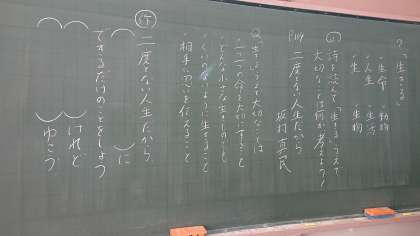 ?「生きる」
・生命 ・動物
・人生 ・生活
・生 ・生物
詩を読んで「生きる」うえで
大切なことは何か考えよう！
二度とない人生だから
坂村真民
・一つ一つの命を大切にすること
・どんな小さな生きものでも
・くいのないように生きること
・相手に思いを伝えること
二度とない人生だから
（　）に
できるだけのことをしよう
（　）けれど
（　）ゆこう